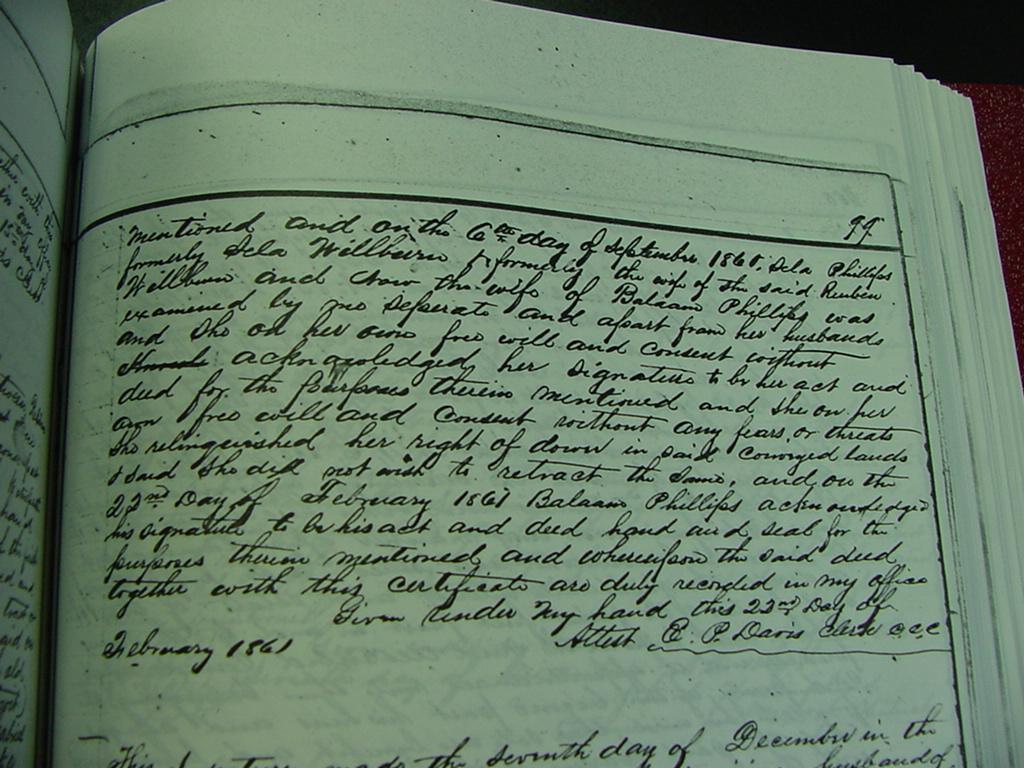 99
mentioned and on the 6th day of September 1860, Sela Phillips
formerly Sela Willburn & formerly the wife of the said Reuben
Willburn and now the wife of Balaam Phillips was
examined by me seperate and apart from her husbands
and she on her own free will and consent without
acknowledged her signature to be her act and
deed for the purposes therein mentioned and she on her
own free will and consent without any fears, or threats
she relinquished her right of down in said conveyed lands
& said she did not wish to retract the same, and on the
22nd Day of February 1861 Balaam Phillips acknowledged
his signature to be his act and deed hand and seal for the
purposes therein mentioned and whereupon the said deed
together with this certificate are duly recorded in my office
Given under my hand this 22nd Day of
February 1861 Attest E. P. Davis Clerk C.C.C
This made the seventh day of December in the
husband of